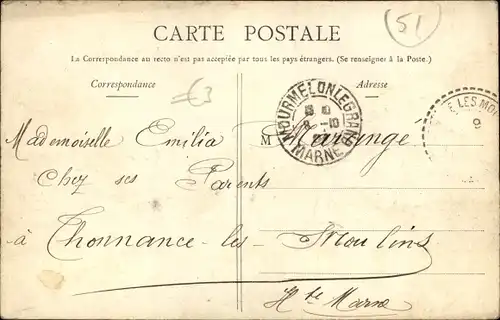 CARTE POSTALE
51
La Correspondance au recto n'est pas acceptée par tous les pays étrangers. (Se renseigner à la Poste.)
Correspondance
Adresse
€3
MOURMELON LE GRAND
8 -10
MARNE
E LES MO
9
Mademoiselle Emilia
M
Chez ses Parents
à Thonnance-les-Moulins
Hte Marne